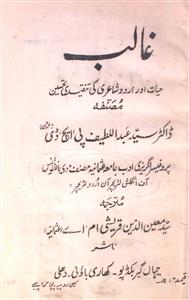 غالب
حیات اور اردو شاعری کی تنقیدی تحسین
مصنفہ
ڈاکٹر سید عبداللطیف پی ایچ ڈی
پروفیسر انگریزی ادب جامعہ عثمانیہ مصنف دی انفلوئنس
آف انگلش لٹریچر آن اردو لٹریچر
مترجمہ
سید معین الدین قریشی ام ۔ اے (عثمانیہ)
ناشر
جہانگیر بکڈپو ۔ کھاری باؤلی ۔ دہلی